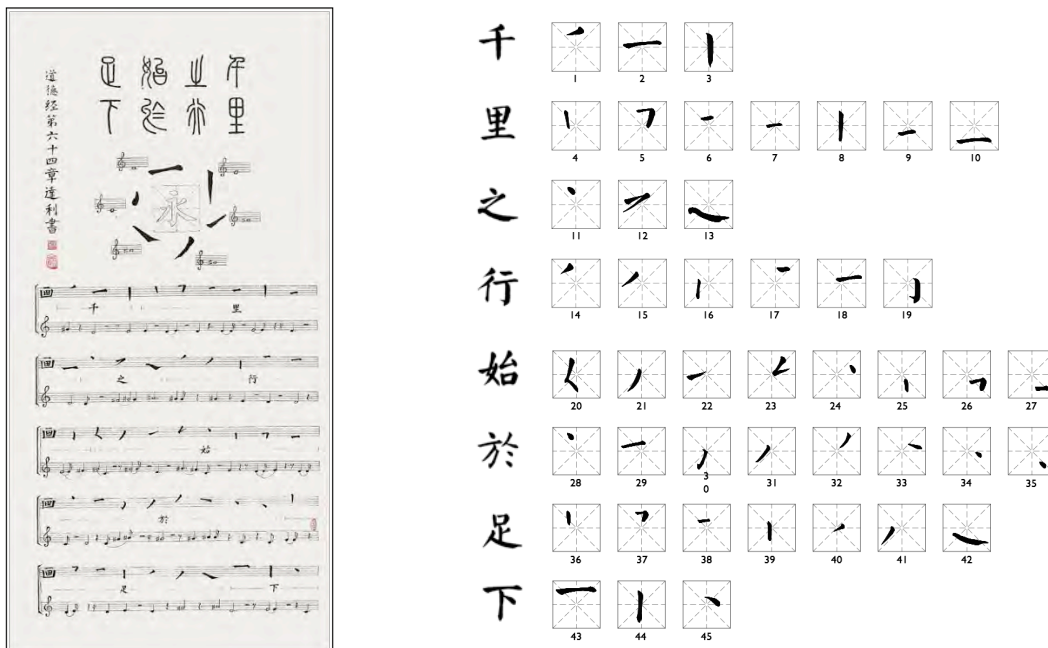 千里
之行
始於
足下
道德经第六十四章達利書
永
千 里
之 行
始
於
足 下
千
1 2 3
里
4 5 6 7 8 9 10
之
11 12 13
行
14 15 16 17 18 19
始
20 21 22 23 24 25 26 27
於
28 29 30 31 32 33 34 35
足
36 37 38 39 40 41 42
下
43 44 45